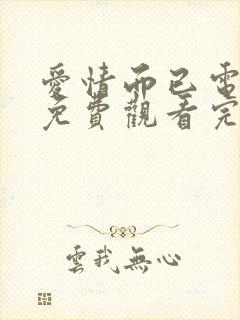 愛情而已電
免費觀看完
雲我無心